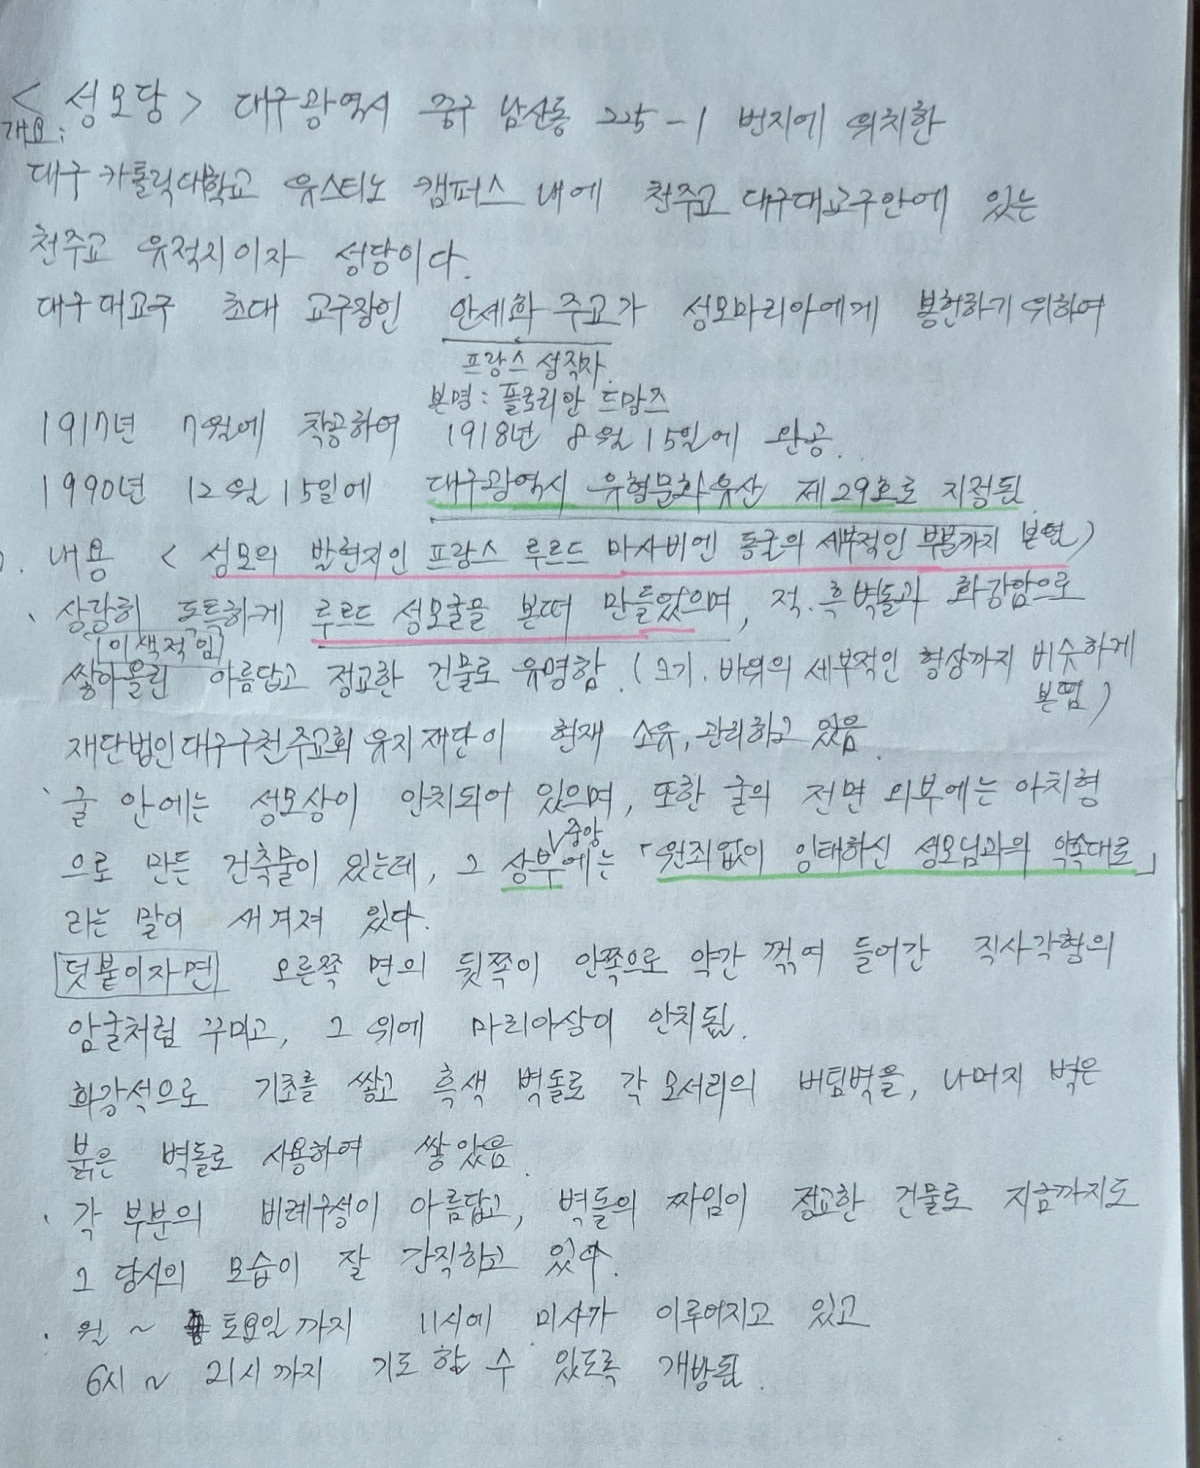 < 성모당 > 대구광역시 중구 남산동 225-1 번지에 위치한
개요:
대구카톨릭대학교 유스티노 캠퍼스 내에 천주교 대구대교구안에 있는
천주교 유적지이자 성당이다.
대구대교구 초대 교구장인 안세화 주교가 성모마리아에게 봉헌하기 위하여
프랑스 성직자.
본명: 플로리안 드망즈
1917년 7월에 착공하여 1918년 8월 15일에 완공.
1990년 12월 15일에 대구광역시 유형문화유산 제29호로 지정됨.
내용 < 성모의 발현지인 프랑스 루르드 마사비엔 동굴의 세부적인 부분까지 본떰)
상당히 독특하게 루르드 성모굴을 본떠 만들었으며, 적.흑벽돌과 화강암으로
(이색적임)
쌓아올린 아름답고 정교한 건물로 유명함. (크기. 바위의 세부적인 형상까지 비슷하게
본떰)
재단법인대구구천주교회유지재단이 현재 소유,관리하고 있음.
굴 안에는 성모상이 안치되어 있으며, 또한 굴의 전면 외부에는 아치형
으로 만든 건축물이 있는데, 그 상부 ∨중앙 에는 「원죄없이 잉태하신 성모님과의 약속대로」
라는 말이 새겨져 있다.
덧붙이자면 오른쪽 면의 뒷쪽이 안쪽으로 약간 꺾여 들어간 직사각형의
암굴처럼 꾸미고, 그 위에 마리아상이 안치됨.
화강석으로 기초를 쌓고 흑색 벽돌로 각 모서리의 버팀벽을, 나머지 벽은
붉은 벽돌로 사용하여 쌓았음.
· 각 부분의 비례구성이 아름답고, 벽돌의 짜임이 정교한 건물로 지금까지도
그 당시의 모습이 잘 간직하고 있다.
· 월 ~ 토요일까지 11시에 미사가 이루어지고 있고
6시 ~ 21시까지 기도 할 수 있도록 개방됨.